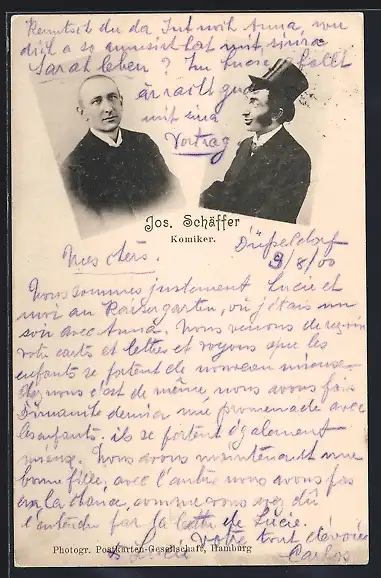 Kenntest du da Tut noch Anna, wo
dich a so amusirt hat mit sinre
Sarah leben? Im buese fallt
är racht gua
mit sina
Vortrag
Jos. Schäffer
Komiker.
Düsseldorf
9/8/00
Mes chers.
Nous sommes justement Lucie et
moi au Kaisergarten, où j'étais un
soir avec Anna. Nous venons de recevoir
votre carte et lettre et voyons que les
enfants se portent de nouveau mieux.
Chez nous c'est de même, nous avons fait
Dimanche dernier une promenade avec
les enfants. ils se portent également
mieux. Nous avons maintenant une
bonne fille, avec l'autre nous avons pas
eu la chance, comme vous avez dû
l'entendre par la lettre de Lucie.
Votre tout dévoué
& Lucie Carlos
Photogr. Postkarten-Gesellschaft, Hamburg